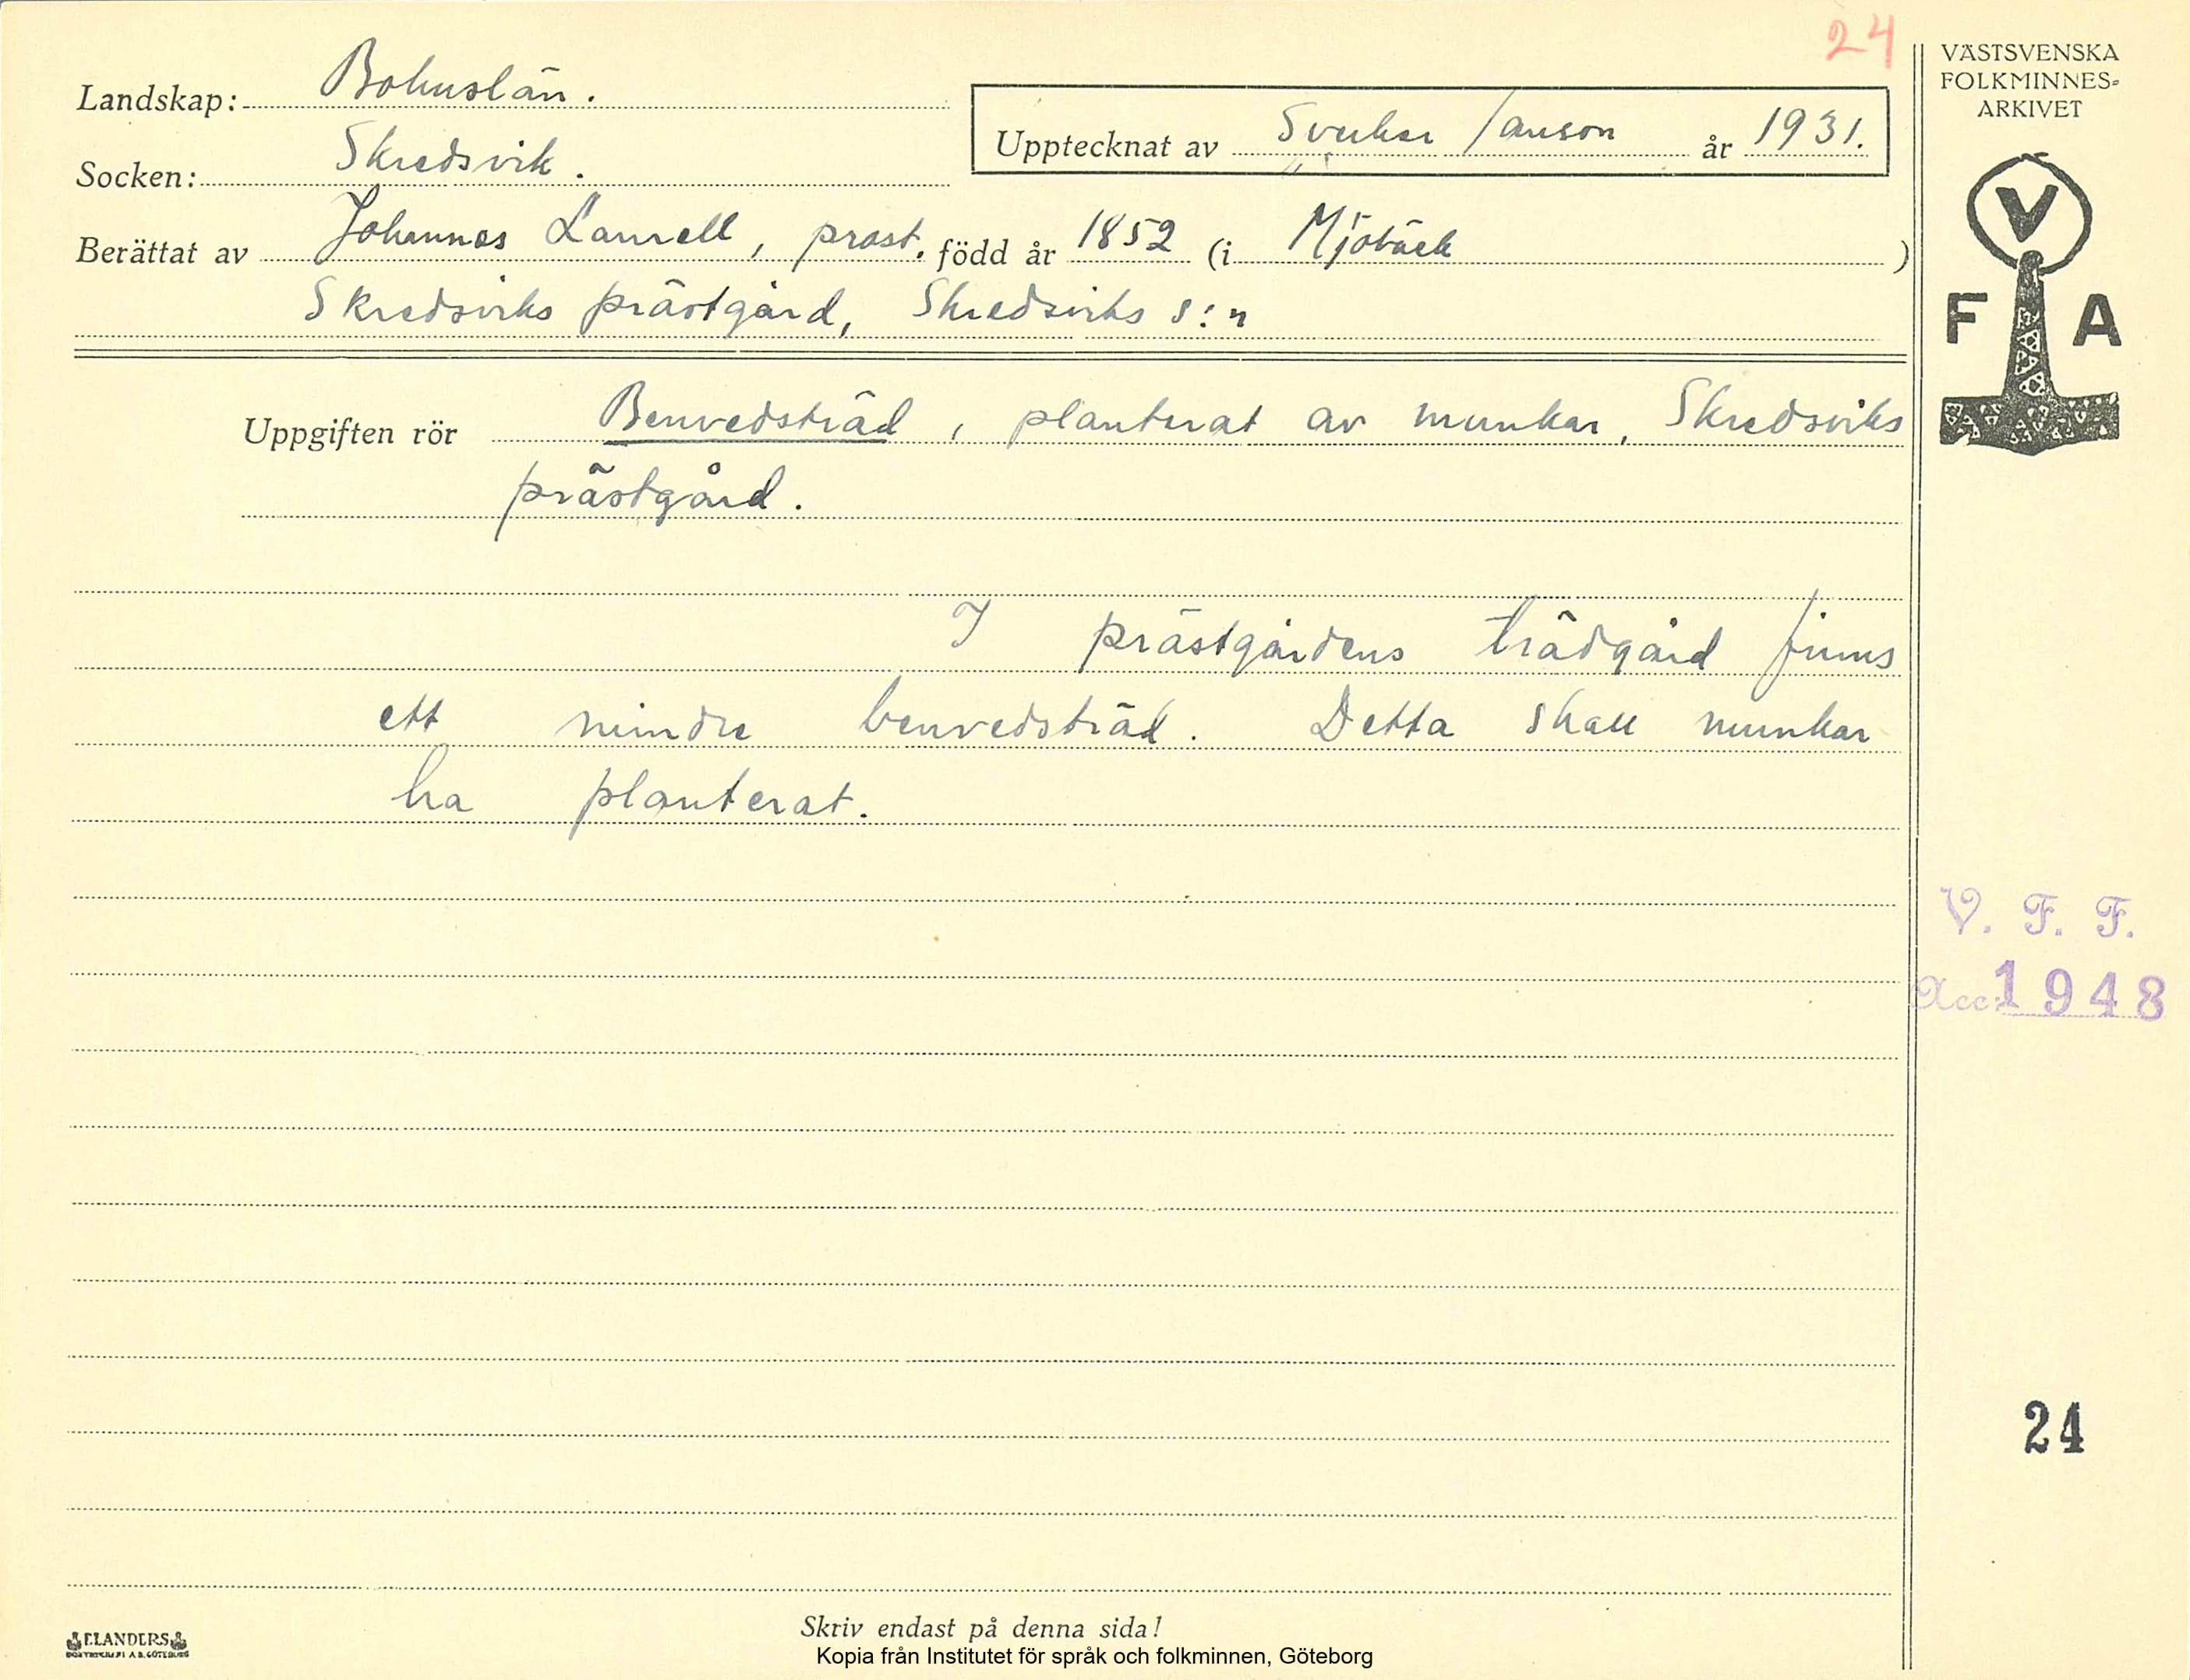 24
Landskap: Bohuslän.
Socken: Skredsvik.
Upptecknat av Sverker Janson år 1931.
Berättat av Johannes Laurell, prost. född år 1852 (i Mjöbäck )
Skredsviks prästgård, Skredsviks s:n
Uppgiften rör Benvedsträd, planterat av munkar, Skredsviks
prästgård.
I prästgårdens trädgård finns
ett mindre benvedsträd. Detta skall munkar
ha planterat.
VÄSTSVENSKA
FOLKMINNES-
ARKIVET
V
F A
V. F. F.
Acc. 1948
24
Skriv endast på denna sida!
ELANDERS
Kopia från Institutet för språk och folkminnen, Göteborg